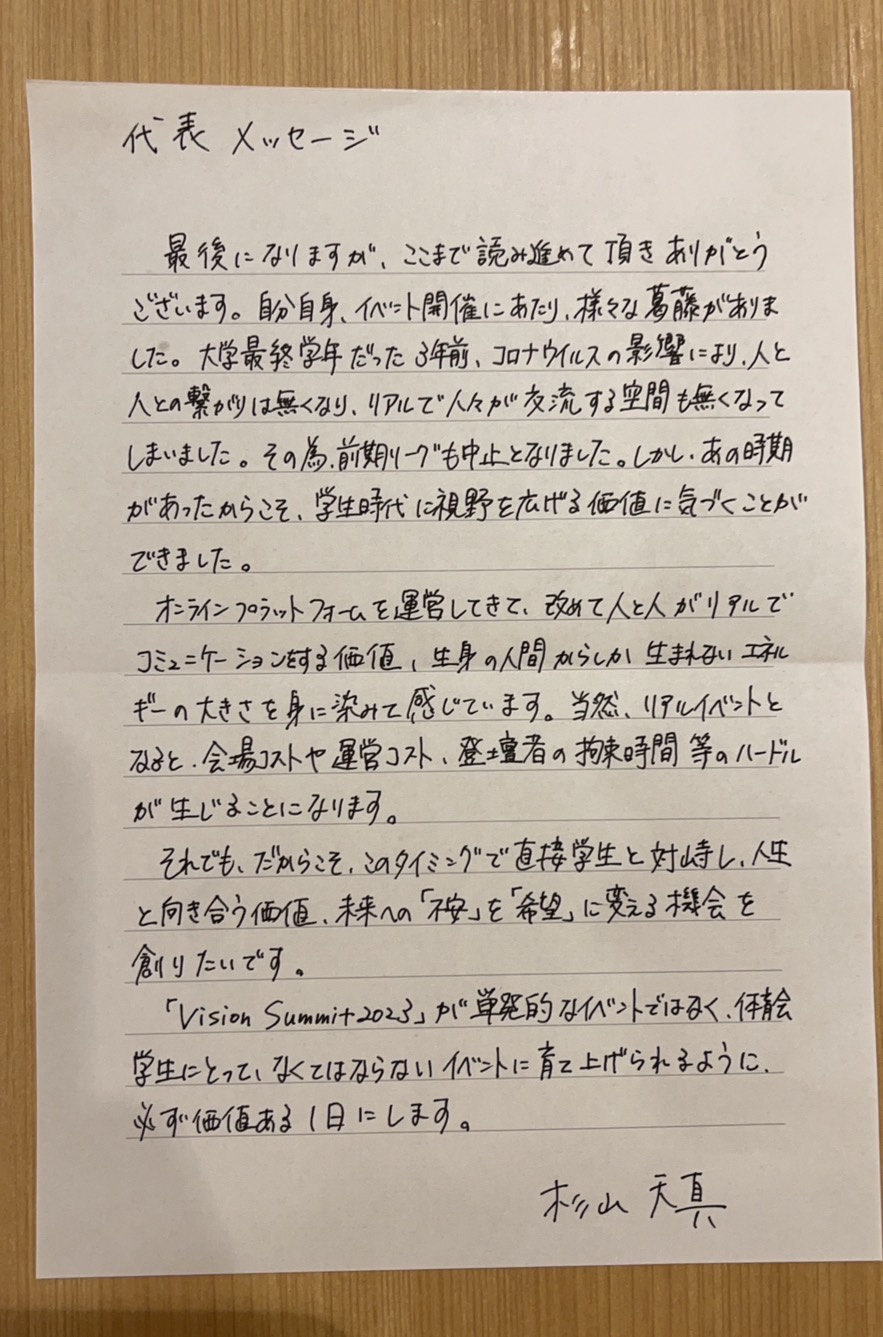 代表 メッセージ
最後になりますが、ここまで読み進めて頂きありがとう
ございます。自分自身、イベント開催にあたり、様々な葛藤がありま
した。大学最終学年だった3年前、コロナウイルスの影響により、人と
人との繋がりは無くなり、リアルで人々が交流する空間も無くなって
しまいました。その為、前期リーグも中止となりました。しかし、あの時期
があったからこそ、学生時代に視野を広げる価値に気づくことが
できました。
オンラインプラットフォームを運営してきて、改めて人と人がリアルで
コミュニケーションをする価値、生身の人間からしか生まれないエネル
ギーの大きさを身に染みて感じています。当然、リアルイベントと
なると、会場コストや運営コスト、登壇者の拘束時間等のハードル
が生じることになります。
それでも、だからこそ、このタイミングで直接学生と対峙し、人生
と向き合う価値、未来への「不安」を「希望」に変える機会を
創りたいです。
「Vision Summit2023」が単発的なイベントではなく、体育会
学生にとって、なくてはならないイベントに育て上げられるように、
必ず価値ある1日にします。
杉山 天真